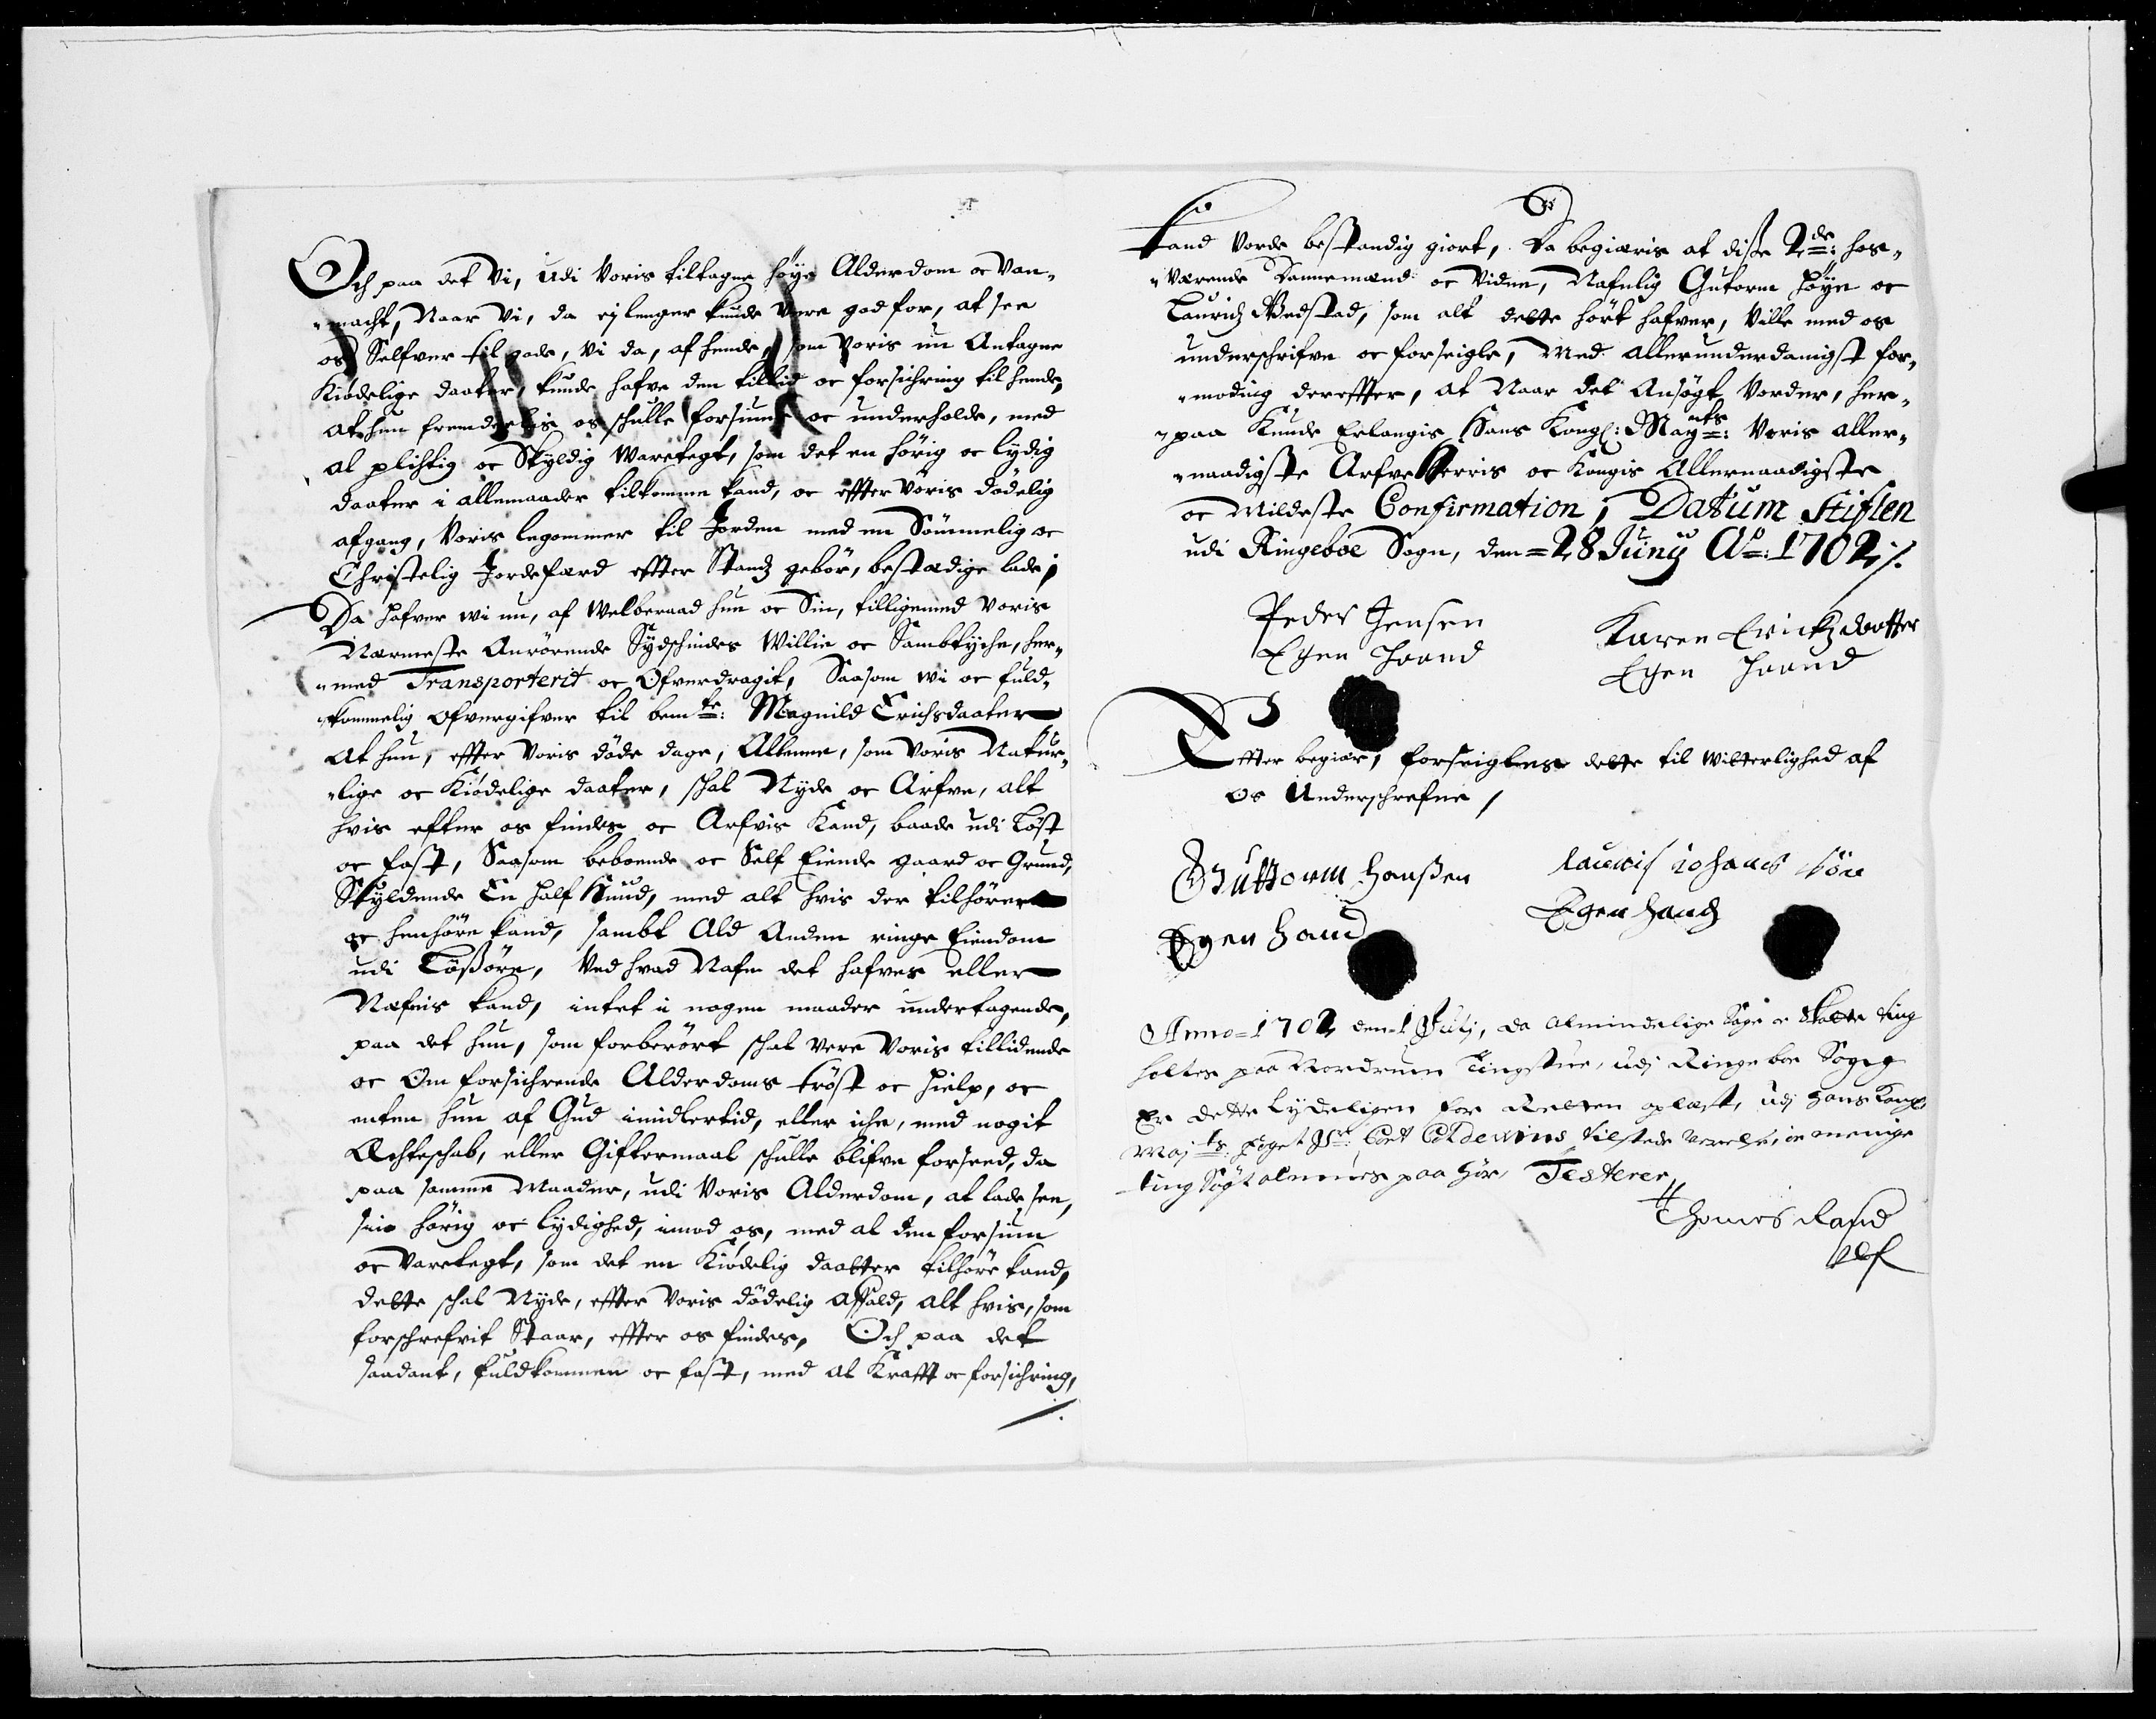 Och paa det Vi, udi Voris tiltagne höye Alderdom oc Van„
„macht, Naar Vi, da ej lenger kunde Være god for, at see
os Selfver til gode, Vi da, af hende, som Voris nu Antagne
Kiödelige daater, kunde hafve den tillid oc forsichring til hende,
at hun fremdeelis os schulle forsiune oc underholde, med
al plichtig oc Skyldig Waretegt, som det en hörig oc lydig
daater i allemaader tilkomme kand, oc effter Voris dödelig
afgang, Voris legommer til Jorden med en Sömmelig oc
Christelig Jordefærd effter Standz gebör, bestædige lade;
Da hafver wi nu, af Welberaad hu oc Sin, tilligemed Voris
Nærmeste Anrörende Sydschindes Willie oc Sambtyche, her„
„med Transporterit oc Ofverdragit, Saasom wi oc fuld„
„kommelig Ofvergifver til bemte: Magnild Erichsdaater
At hun, effter Voris döde dage, Alleene, som Voris Natur„
„lige oc Kiödelige daater, schal Nyde oc Arfve, alt
hvis efter os findes oc Arfvis Kand, baade udi Löst
oc fast, Saasom beboende oc Self Eiende gaard oc Grund,
Skyldende En half Hud, med alt hvis der tilhörer
oc henhöre kand, sambt Ald Anden ringe Eiendom
udi Lößöre, Ved hvad Nafn det hafves eller
Nefnis kand, intet i nogen maader undertagende,
paa det hun, som forberört schal Vere Voris tillidende
oc Om forsichrende Alderdoms tröst oc hielp, oc
enten hun af Gud imidlertid, eller iche, med nogit
Echteschab, eller Giftermaal schulle blifve forseed, da
paa samme Maader, udi Voris Alderdom, at lade see,
sin hörig oc lydighed, imod os, med al den forsiun
oc Varetegt, som det en Kiödelig daatter tilhöre kand,
dette schal Nyde, effter Voris dödelig affald, alt hvis, som
forschrefvit Staar, effter os findes, Och paa det
saadant, fuldkommen oc fast, med al Krafft oc forsichring,
kand Vorde bestandig giort, Da begiæris at disse 2de: hos„
„Værende Dannemænd oc Vidne, Nafnlig Gutorm Höye oc
Lauridz Wedstad, som alt dette hört hafver, Ville med os
underschrifve oc forseigle, Med allerunderdanigst for„
„moding dereffter, at Naar det Ansögt Vorder, her„
„paa Kunde Erlangis Hans Kongl: Mayts: Voris aller„
„naadigste Arfve Herris oc Kongis Allernaadigste
oc Mildeste Confirmation; Datum Stiflen
udi Ringeboe Sogn, den = 28 Junij Ao: 1702 ⁒
Peder Jensen
Egen Haand
Karen Erichzdotter
Egen Haand
Effter begiær, forseigles dette til Witterlighed af
os Underschrefne /
Guttorm Hanßen
Egen Hand
laurits iohans söe
Egen Handz
Anno = 1702 den = 1 Julj, da Almindelige Sage oc Skatte ting
holtes paa Nordrum Tingstue, udj Ringeboe Sogn
Er dette Lydeligen for Retten oplæst, udj Hans Kongl
Majts: Foget Sr: Cort Coldevins tilstede Verelse, oc menige
ting Sögt almues paa hör, Testerer
Thomes Rafn